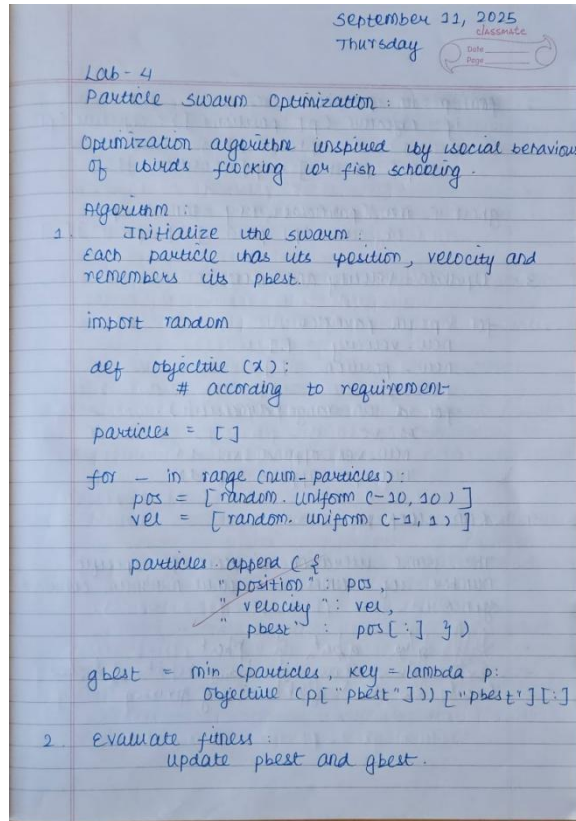 September 11, 2025
Thursday
classmate
Date
Page
Lab - 4
Particle Swarm Optimization :
Optimization algorithm inspired by social behaviour
of birds flocking or fish schooling.
Algorithm :
1. Initialize the swarm :
Each particle has its position, velocity and
remembers its pbest.
import random
def objective (x) :
# according to requirement
particles = []
for _ in range (num_particles) :
pos = [random. uniform (-10, 10)]
vel = [random. uniform (-1, 1)]
particles. append ( {
"position" : pos,
"velocity" : vel,
"pbest" : pos[:] } )
gbest = min (particles, key = lambda p:
objective (p["pbest"])) ["pbest"][:]
2. Evaluate fitness :
update pbest and gbest.